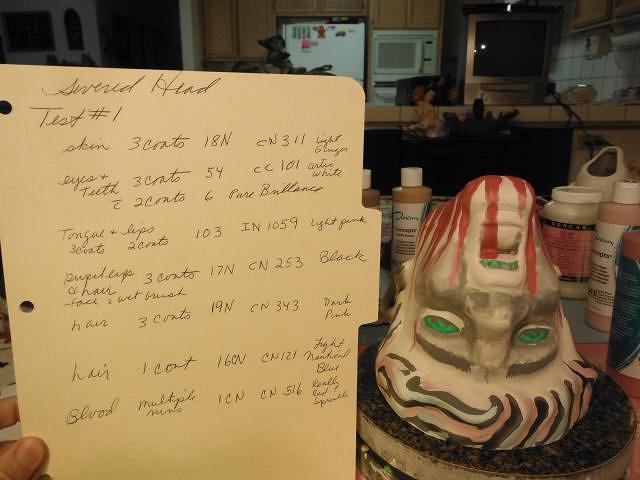 Severed Head
Test #1
skin 3 coats 18N CN 311 Light Ginger
eyes + Teeth 3 coats 54 CC 101 artic White
c̄ 2 coats 6 Pure Brilliance
Tongue + lips 103 IN 1059 Light pink
3 coats 2 coats
3 coats 17N CN 253 Black
& hair
face wet brush
hair 3 coats 19N CN 343 Dark Pink
hair 1 coat 160N CN 121 Light Neutral Blue
Blood multiple runs 1CN CN 516 Really Red Sprinkles
Duncan
Concepts
DUNCAN
Concepts